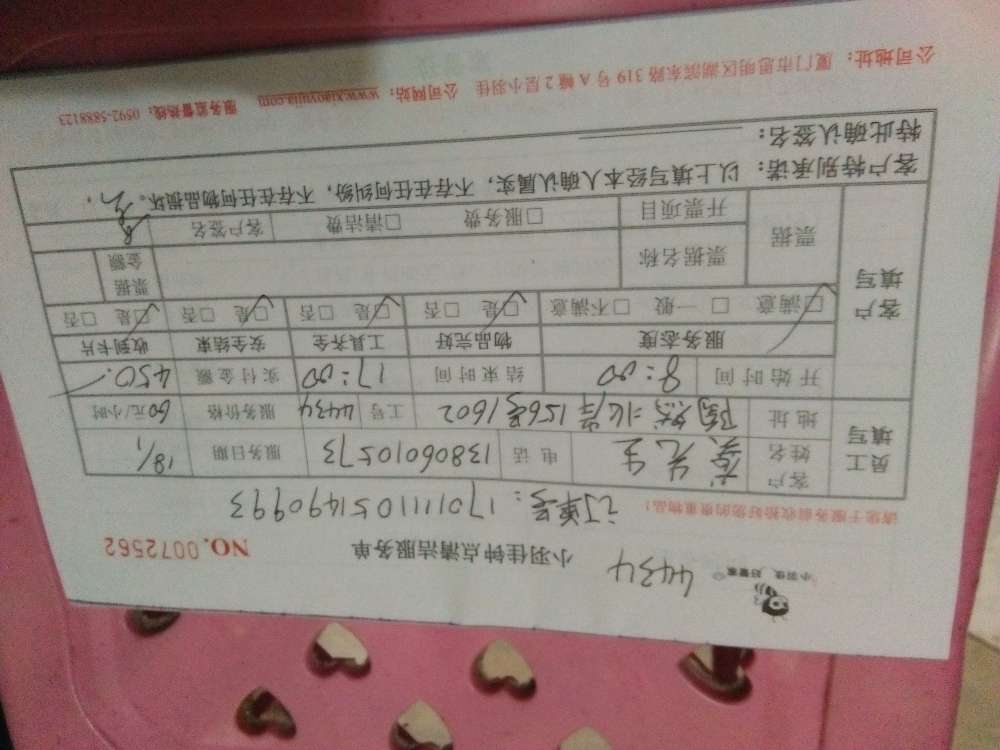 小羽佳 好管家 4434
小羽佳钟点清洁服务单 NO.0072562
订单号：1701111051490993
请您于服务前收拾好您的贵重物品！
员工填写
客户姓名 先生 电话 13806010573 服务日期 18/1
地址 156号1602 工号 4434 服务价格 60元/小时
开始时间 8:00 结束时间 17:00 实付金额 450.
客户填写
服务态度 物品完好 工具齐全 安全结束 收到卡片
☑满意 □一般 □不满意 ☑是 □否 ☑是 □否 ☑是 □否 ☑是 □否
票据 票据名称 票据金额
开票项目 □服务费 □清洁费 客户签名
客户特别承诺：以上填写经本人确认属实，不存在任何纠纷，不存在任何物品损坏。
特此确认签名：
公司地址：厦门市思明区湖滨东路319号A幢2层小羽佳 公司网站：www.xiaoyujia.com 服务监督热线：0592-5888123